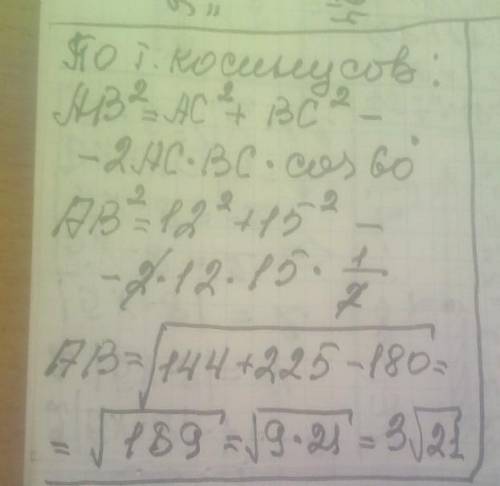 По т. косинусов:
AB² = AC² + BC² −
− 2AC · BC · cos 60°
AB² = 12² + 15² −
− 2 · 12 · 15 · 1/2
AB = √144 + 225 − 180 =
= √189 = √9 · 21 = 3√21